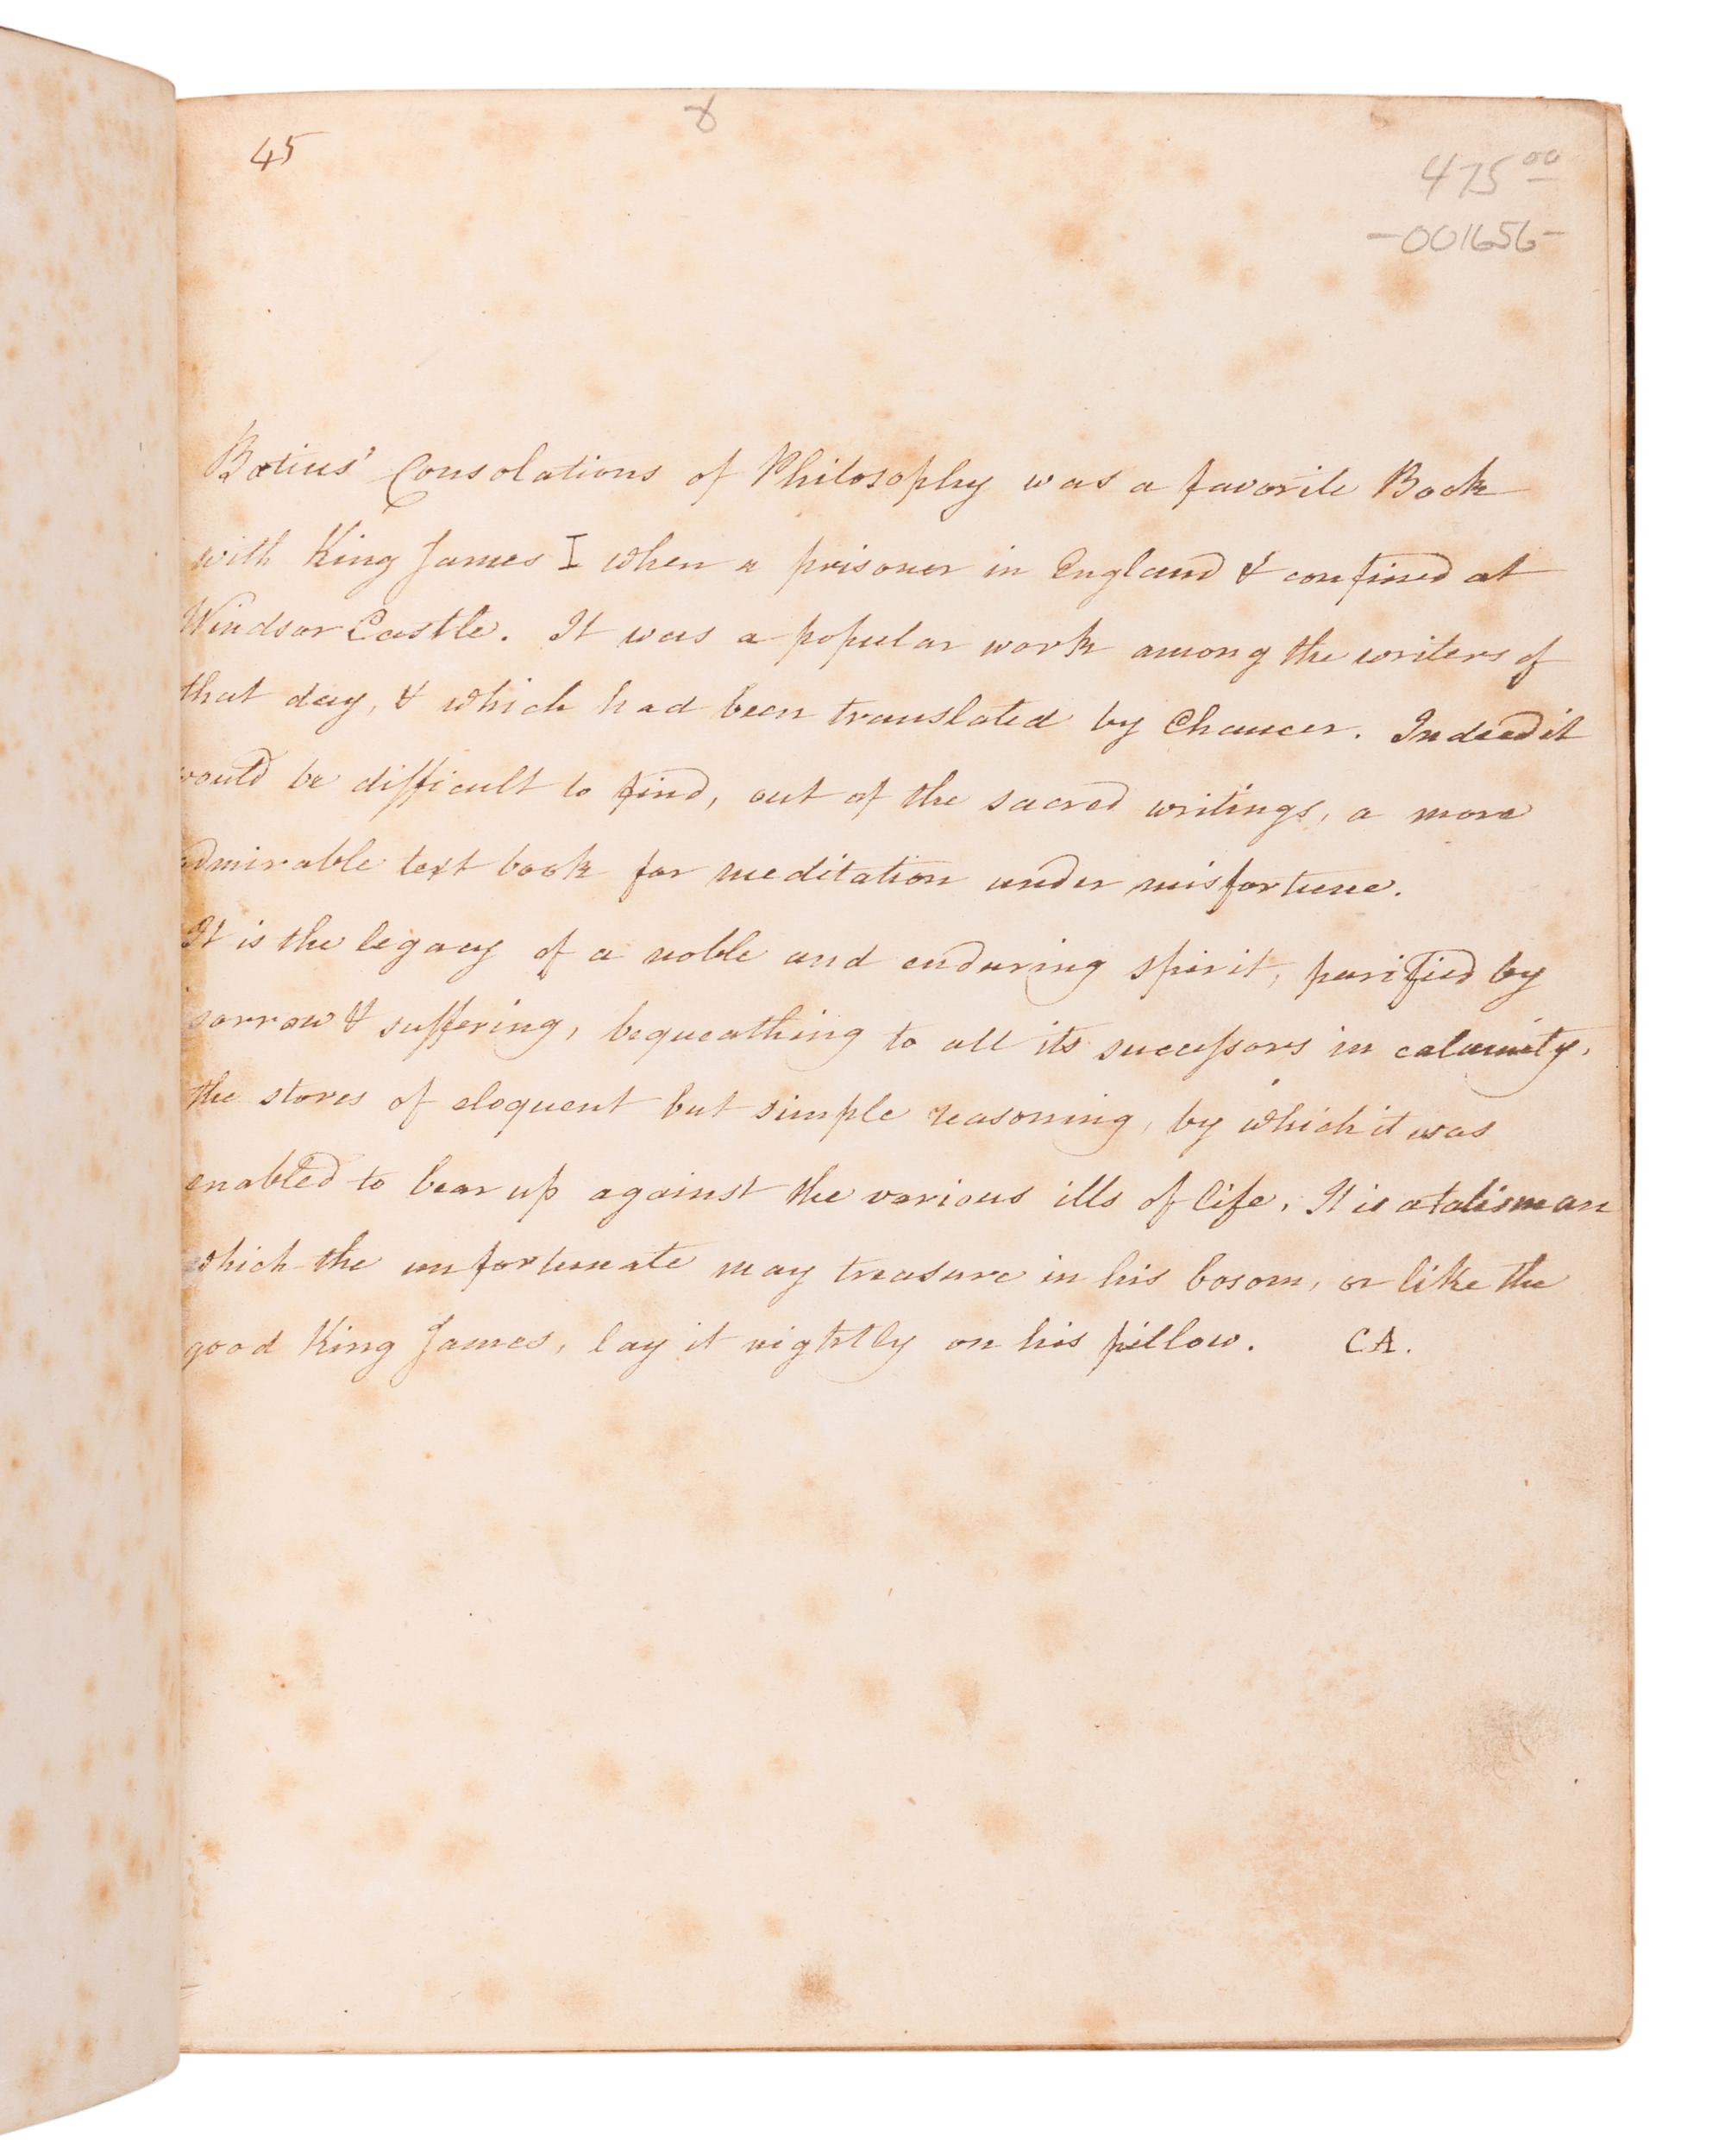 45
8
475 00
-001656-
Boetius' Consolations of Philosophy was a favorite Book
with King James I when a prisoner in England & confined at
Windsor Castle. It was a popular work among the writers of
that day, & which had been translated by Chaucer. Indeed it
would be difficult to find, out of the sacred writings, a more
admirable text book for meditation under misfortune.
It is the legacy of a noble and enduring spirit, purified by
sorrow & suffering, bequeathing to all its successors in calamity,
the stores of eloquent but simple reasoning, by which it was
enabled to bear up against the various ills of life. It is a talisman
which the unfortunate may treasure in his bosom, or like the
good King James, lay it nightly on his pillow. CA.